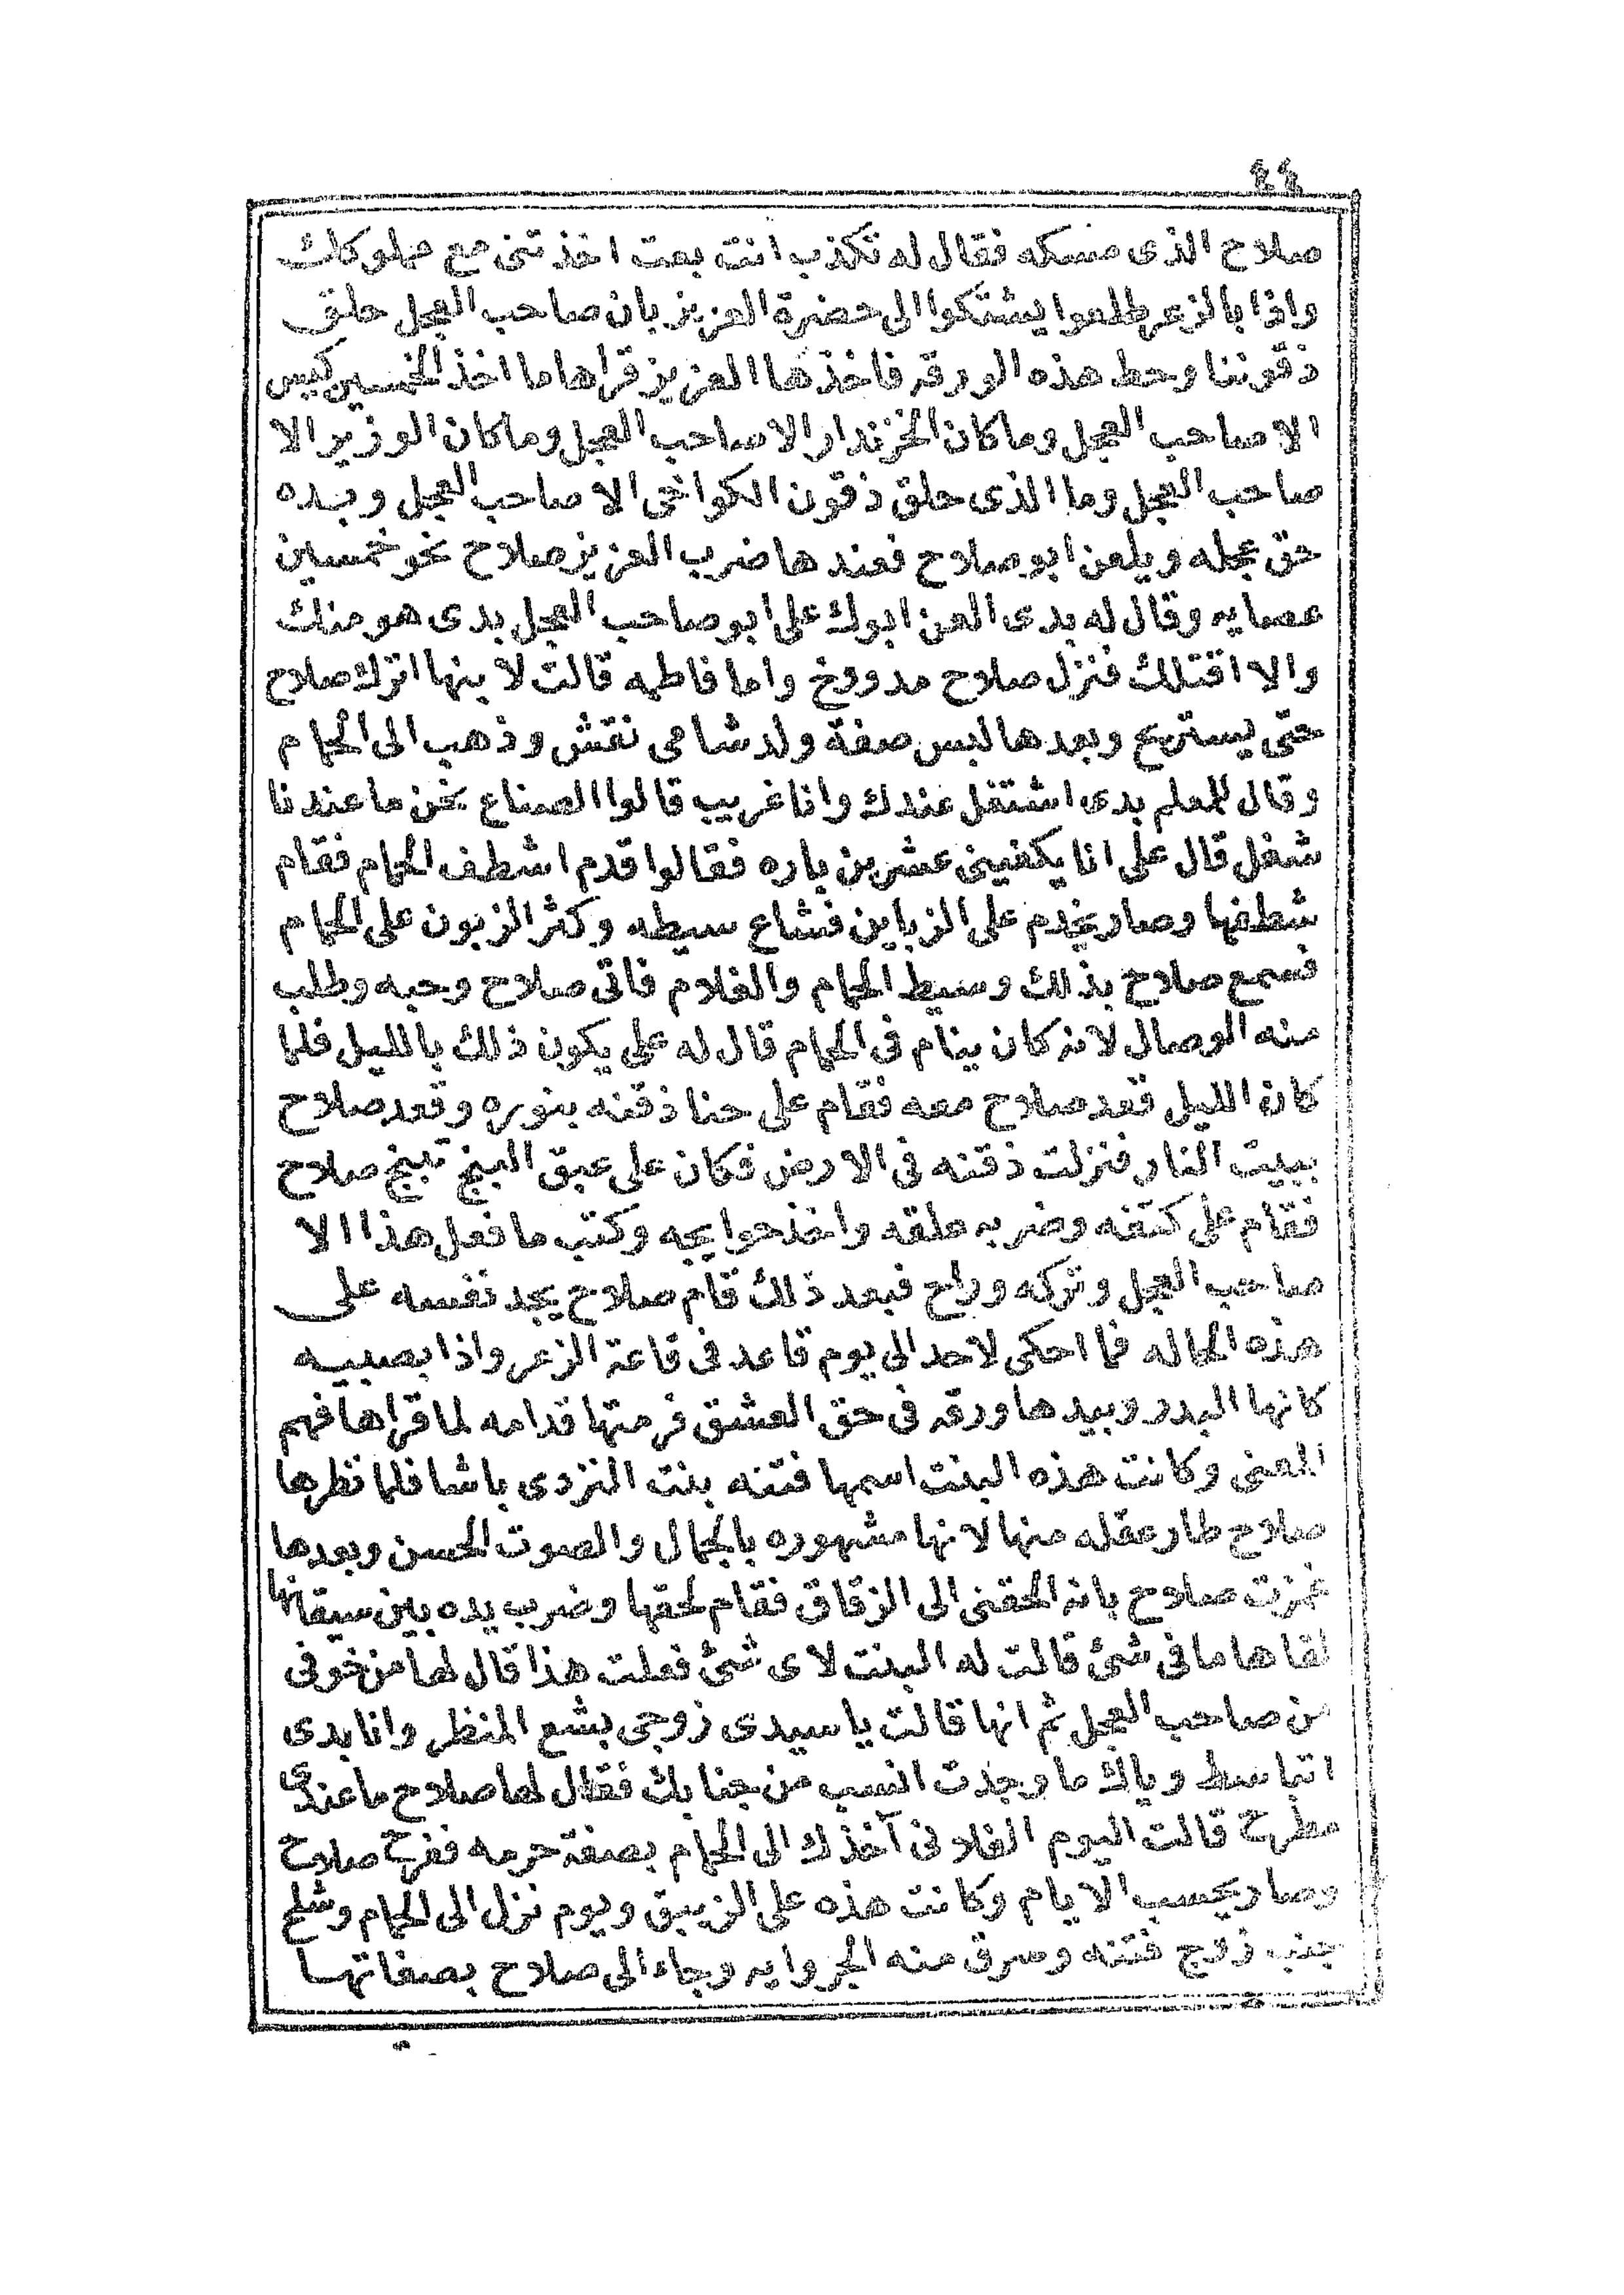 ٤٤
صلاح الذى مسكه فقال له تكذب انت بعت اخذ تنى مع مملوكك
واذا بالزعر طلعوا يشتكوا الى حضرة العزيز بان صاحب العجل حلق
ذقوننا وحط هذه الورقه فاخذها العزيز قراها ما اخذ الخمسين كيس
الا صاحب العجل وما كان الخزندار الا صاحب العجل وما كان الوزير الا
صاحب العجل وما الذى حلق ذقون الكواخى الا صاحب العجل وبده
حق عجله ويلعن ابو صلاح فعندها ضرب العزيز صلاح نحو خمسين
عصايه وقال له بدى العن ابوك على ابو صاحب العجل بدى هو منك
والا اقتلك فنزل صلاح مدووخ واما فاطمه قالت لابنها اترك صلاح
حتى يستريح وبعدها لبس صفة ولد شامى نقش وذهب الى الحمام
وقال للمعلم بدى اشتغل عندك وانا غريب قالوا الصناع نحن ما عندنا
شغل قال على انا يكفينى عشرين باره فقالوا قدم اشطف الحمام فقام
شطفها وصار يخدم على الزباين فشاع سيطه وكثر الزبون على الحمام
فسمع صلاح بذلك وسيط الحمام والغلام فاتى صلاح وحبه وطلب
منه الوصال لانه كان ينام فى الحمام قال له على يكون ذلك بالليل فلما
كان الليل قعد صلاح معه فقام على حنا ذقنه بنوره وقعد صلاح
ببيت النار فنزلت ذقنه فى الارض فكان على عبق البنج تبنج صلاح
فقام على كتفه وضربه علقه واخذ حوايجه وكتب ما فعل هذا الا
صاحب العجل وتركه وراح فبعد ذلك قام صلاح يجد نفسه على
هذه الحاله فما احكى لاحد الى يوم قاعد فى قاعة الزعر واذا بصبيه
كانها البدر وبيدها ورقه فى حق العشق فرمتها قدامه لما قراها فهم
المعنى وكانت هذه البنت اسمها فتنه بنت النزدى باشا فلما نظرها
صلاح طار عقله منها لانها مشهوره بالجمال والصوت الحسن وبعدها
غمزت صلاح بانه الحقنى الى الزقاق فقام لحقها وضرب يده بين سيقانها
لقاها ما فى شئ قالت له البنت لاى شئ فعلت هذا قال لها من خوفى
من صاحب العجل ثم انها قالت يا سيدى زوجى بشع المنظر وانا بدى
اتباسط وياك ما وجدت انسب من جنابك فقال لها صلاح ما عندى
مطرح قالت اليوم الفلانى آخذك الى الحمام بصفة حرمه ففرح صلاح
وصار يحسب الايام وكانت هذه على الزيبق ويوم نزل الى الحمام وشلح
جنب زوج فتنه وسرق منه الجروايه وجاء الى صلاح بصفاتها